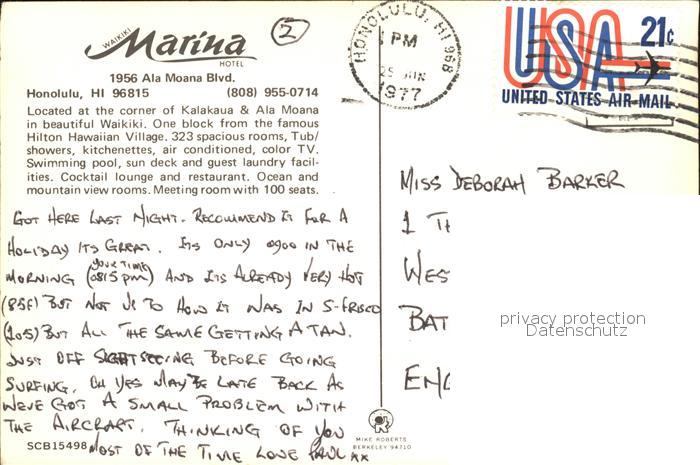 WAIKIKI
Marina
HOTEL
2
1956 Ala Moana Blvd.
Honolulu, HI 96815 (808) 955-0714
Located at the corner of Kalakaua & Ala Moana
in beautiful Waikiki. One block from the famous
Hilton Hawaiian Village. 323 spacious rooms, Tub/
showers, kitchenettes, air conditioned, color TV.
Swimming pool, sun deck and guest laundry facil-
ities. Cocktail lounge and restaurant. Ocean and
mountain view rooms. Meeting room with 100 seats.
GOT HERE LAST NIGHT. RECOMMEND IT FOR A
HOLIDAY ITS GREAT. ITS ONLY 0900 IN THE
YOUR TIME
MORNING (0815 pm) AND ITS ALREADY VERY HOT
(85F) BUT NOT UP TO HOW IT WAS IN S-FRISCO
(105) BUT ALL THE SAME GETTING A TAN.
JUST OFF SIGHTSEEING BEFORE GOING
SURFING. OH YES MAY BE LATE BACK AS
WEVE GOT A SMALL PROBLEM WITH
THE AIRCRAFT. THINKING OF YOU
SCB15498 MOST OF THE TIME LOVE PAUL xx
HONOLULU, HI 968
PM
1977
USA 21c
UNITED STATES AIR MAIL
MISS DEBORAH BARKER
1 TH
WES
BAT
ENG
privacy protection
Datenschutz
MIKE ROBERTS
BERKELEY 94710